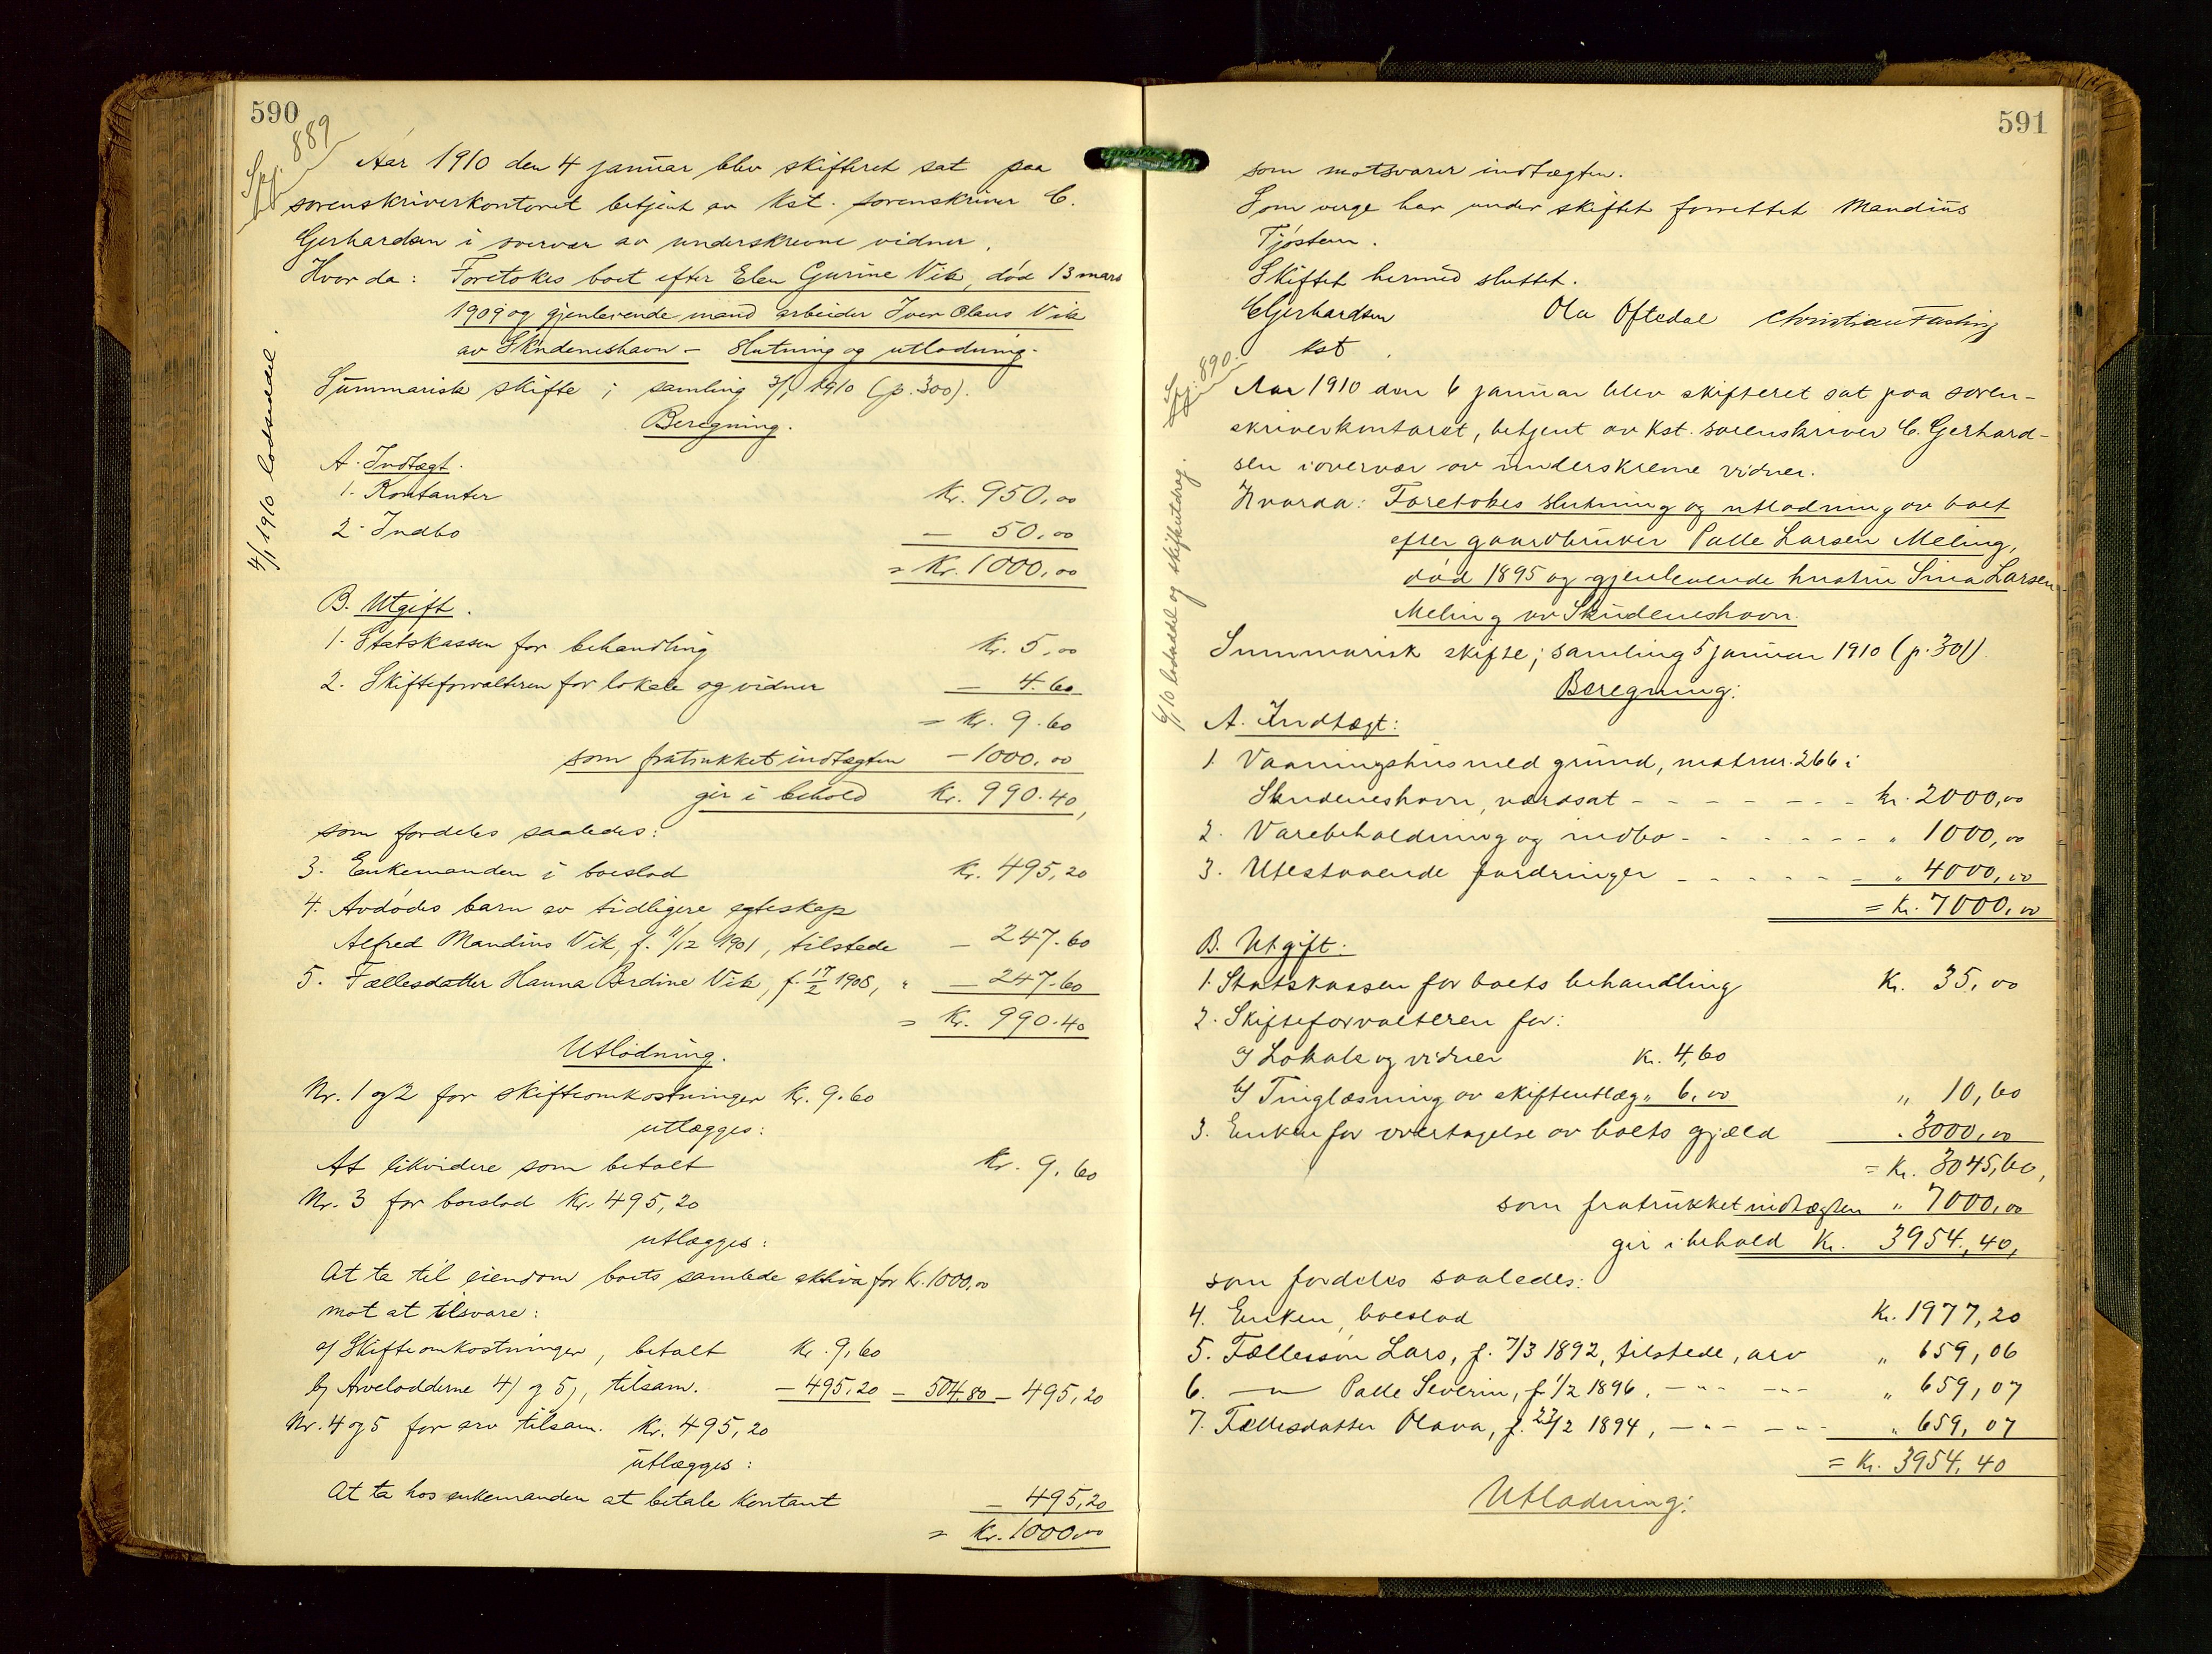 590
889
Aar 1910 den 4 januar blev skifteret sat paa
sorenskriverkontoret betjent av kst. sorenskriver C.
Gerhardsen i overvær av underskrevne vidner.
Hvor da: Foretokes boet efter Elen Gurine Vik, død 13 mars
1909 og gjenlevende mand arbeider Iver Olaus Vik
av Skudeneshavn – slutning og utlodning.
Summarisk skifte; samling 3/1 1910 (p. 300).
Beregning.
4/1 1910 lodseddel.
A. Indtægt.
1. Kontanter Kr. 950,00
2. Indbo — 50,00
= Kr. 1000,00
B. Utgift.
1. Statskassen for behandling Kr. 5,00
2. Skifteforvalteren for lokale og vidner — 4.60
= Kr. 9.60
som fratrukket indtægten — 1000,00
gir i behold Kr. 990.40,
som fordeles saaledes:
3. Enkemanden i boeslod Kr. 495,20
4. Avdødes barn av tidligere egteskap
Alfred Mandius Vik, f. 11/12 1901, tilstede — 247.60
5. Fællesdatter Hanna Berdine Vik, f. 17/2 1908, " — 247.60
= Kr. 990.40
Utlodning.
Nr. 1 og 2 for skifteomkostninger Kr. 9.60
utlægges:
At likvidere som betalt Kr. 9,60
Nr. 3 for boeslod Kr. 495,20
utlægges:
At ta til eiendom boets samlede aktiva for Kr. 1000,00
mot at tilsvare:
a) Skifteomkostninger, betalt Kr. 9,60
b) Arvelodderne 4) og 5), tilsam. — 495,20 — 504.80 — 495,20
Nr. 4 og 5 for arv tilsam. Kr. 495,20
utlægges:
At ta hos enkemanden at betale kontant — 495,20
= Kr. 1000,00
591
som motsvarer indtægten.
Som verge har under skiftet forrettet Mandius
Tjøstem.
Skiftet hermed sluttet.
C Gerhardsen Ola Oftedal Christian Fasting
kst.
890.
Aar 1910 den 6 januar blev skifteret sat paa soren-
skriverkontoret, betjent av kst. sorenskriver C. Gerhard-
sen i overvær av underskrevne vidner.
Hvorda: Foretokes slutning og utlodning av boet
efter gaardbruker Palle Larsen Meling,
død 1895 og gjenlevende hustru Sina Larsen
Meling av Skudeneshavn.
Summarisk skifte; samling 5 januar 1910 (p. 301).
Beregning:
6/1 10 lodseddel og skifteutdrag.
A. Indtægt:
1. Vaaningshus med grund, matrnr. 266 i
Skudeneshavn, værdsat - - - - - - - kr. 2000,00
2. Varebeholdning og indbo - - - - - - - " 1000,00
3. Utestaaende fordringer - - - - - - " 4000,00
= Kr. 7000,00
B. Utgift:
1. Statskassen for boets behandling Kr. 35,00
2. Skifteforvalteren for:
a) Lokale og vidner Kr. 4,60
b) Tinglæsning av skifteutlæg " 6,00 " 10,60
3. Enken for overtagelse av boets gjæld " 3000,00
= Kr. 3045,60,
som fratrukket indtægten " 7000,00
gir i behold Kr. 3954,40,
som fordeles saaledes:
4. Enken, boeslod Kr. 1977,20
5. Fællessøn Lars, f. 7/3 1892, tilstede, arv " 659,06
6. —"— Palle Severin, f. 1/2 1896, —"— —"— " 659,07
7. Fællesdatter Olava, f. 22/2 1894, —"— —"— " 659,07
= Kr. 3954,40
Utlodning: